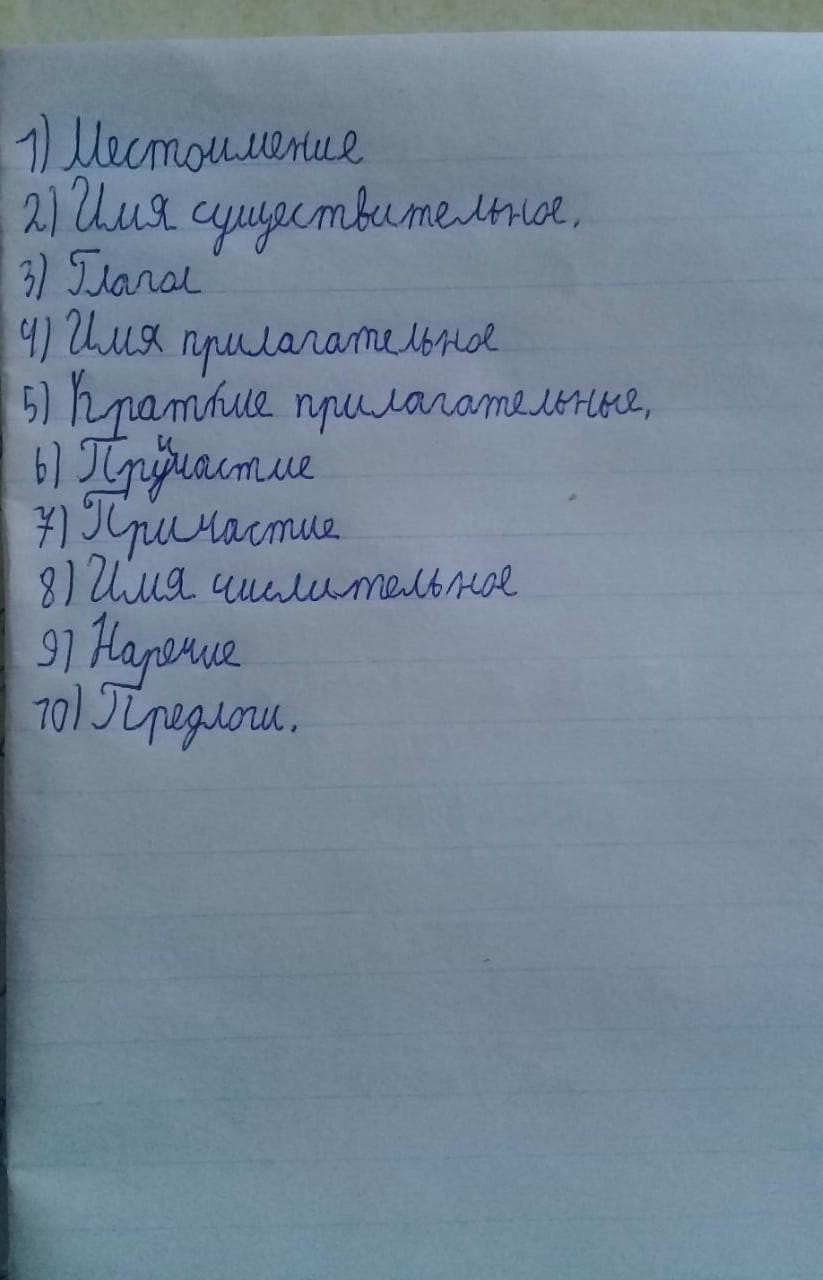 1) Местоимение
2) Имя существительное.
3) Глагол
4) Имя прилагательное
5) Краткие прилагательные,
6) Причастие
7) Причастие
8) Имя числительное
9) Наречие
10) Предлоги.